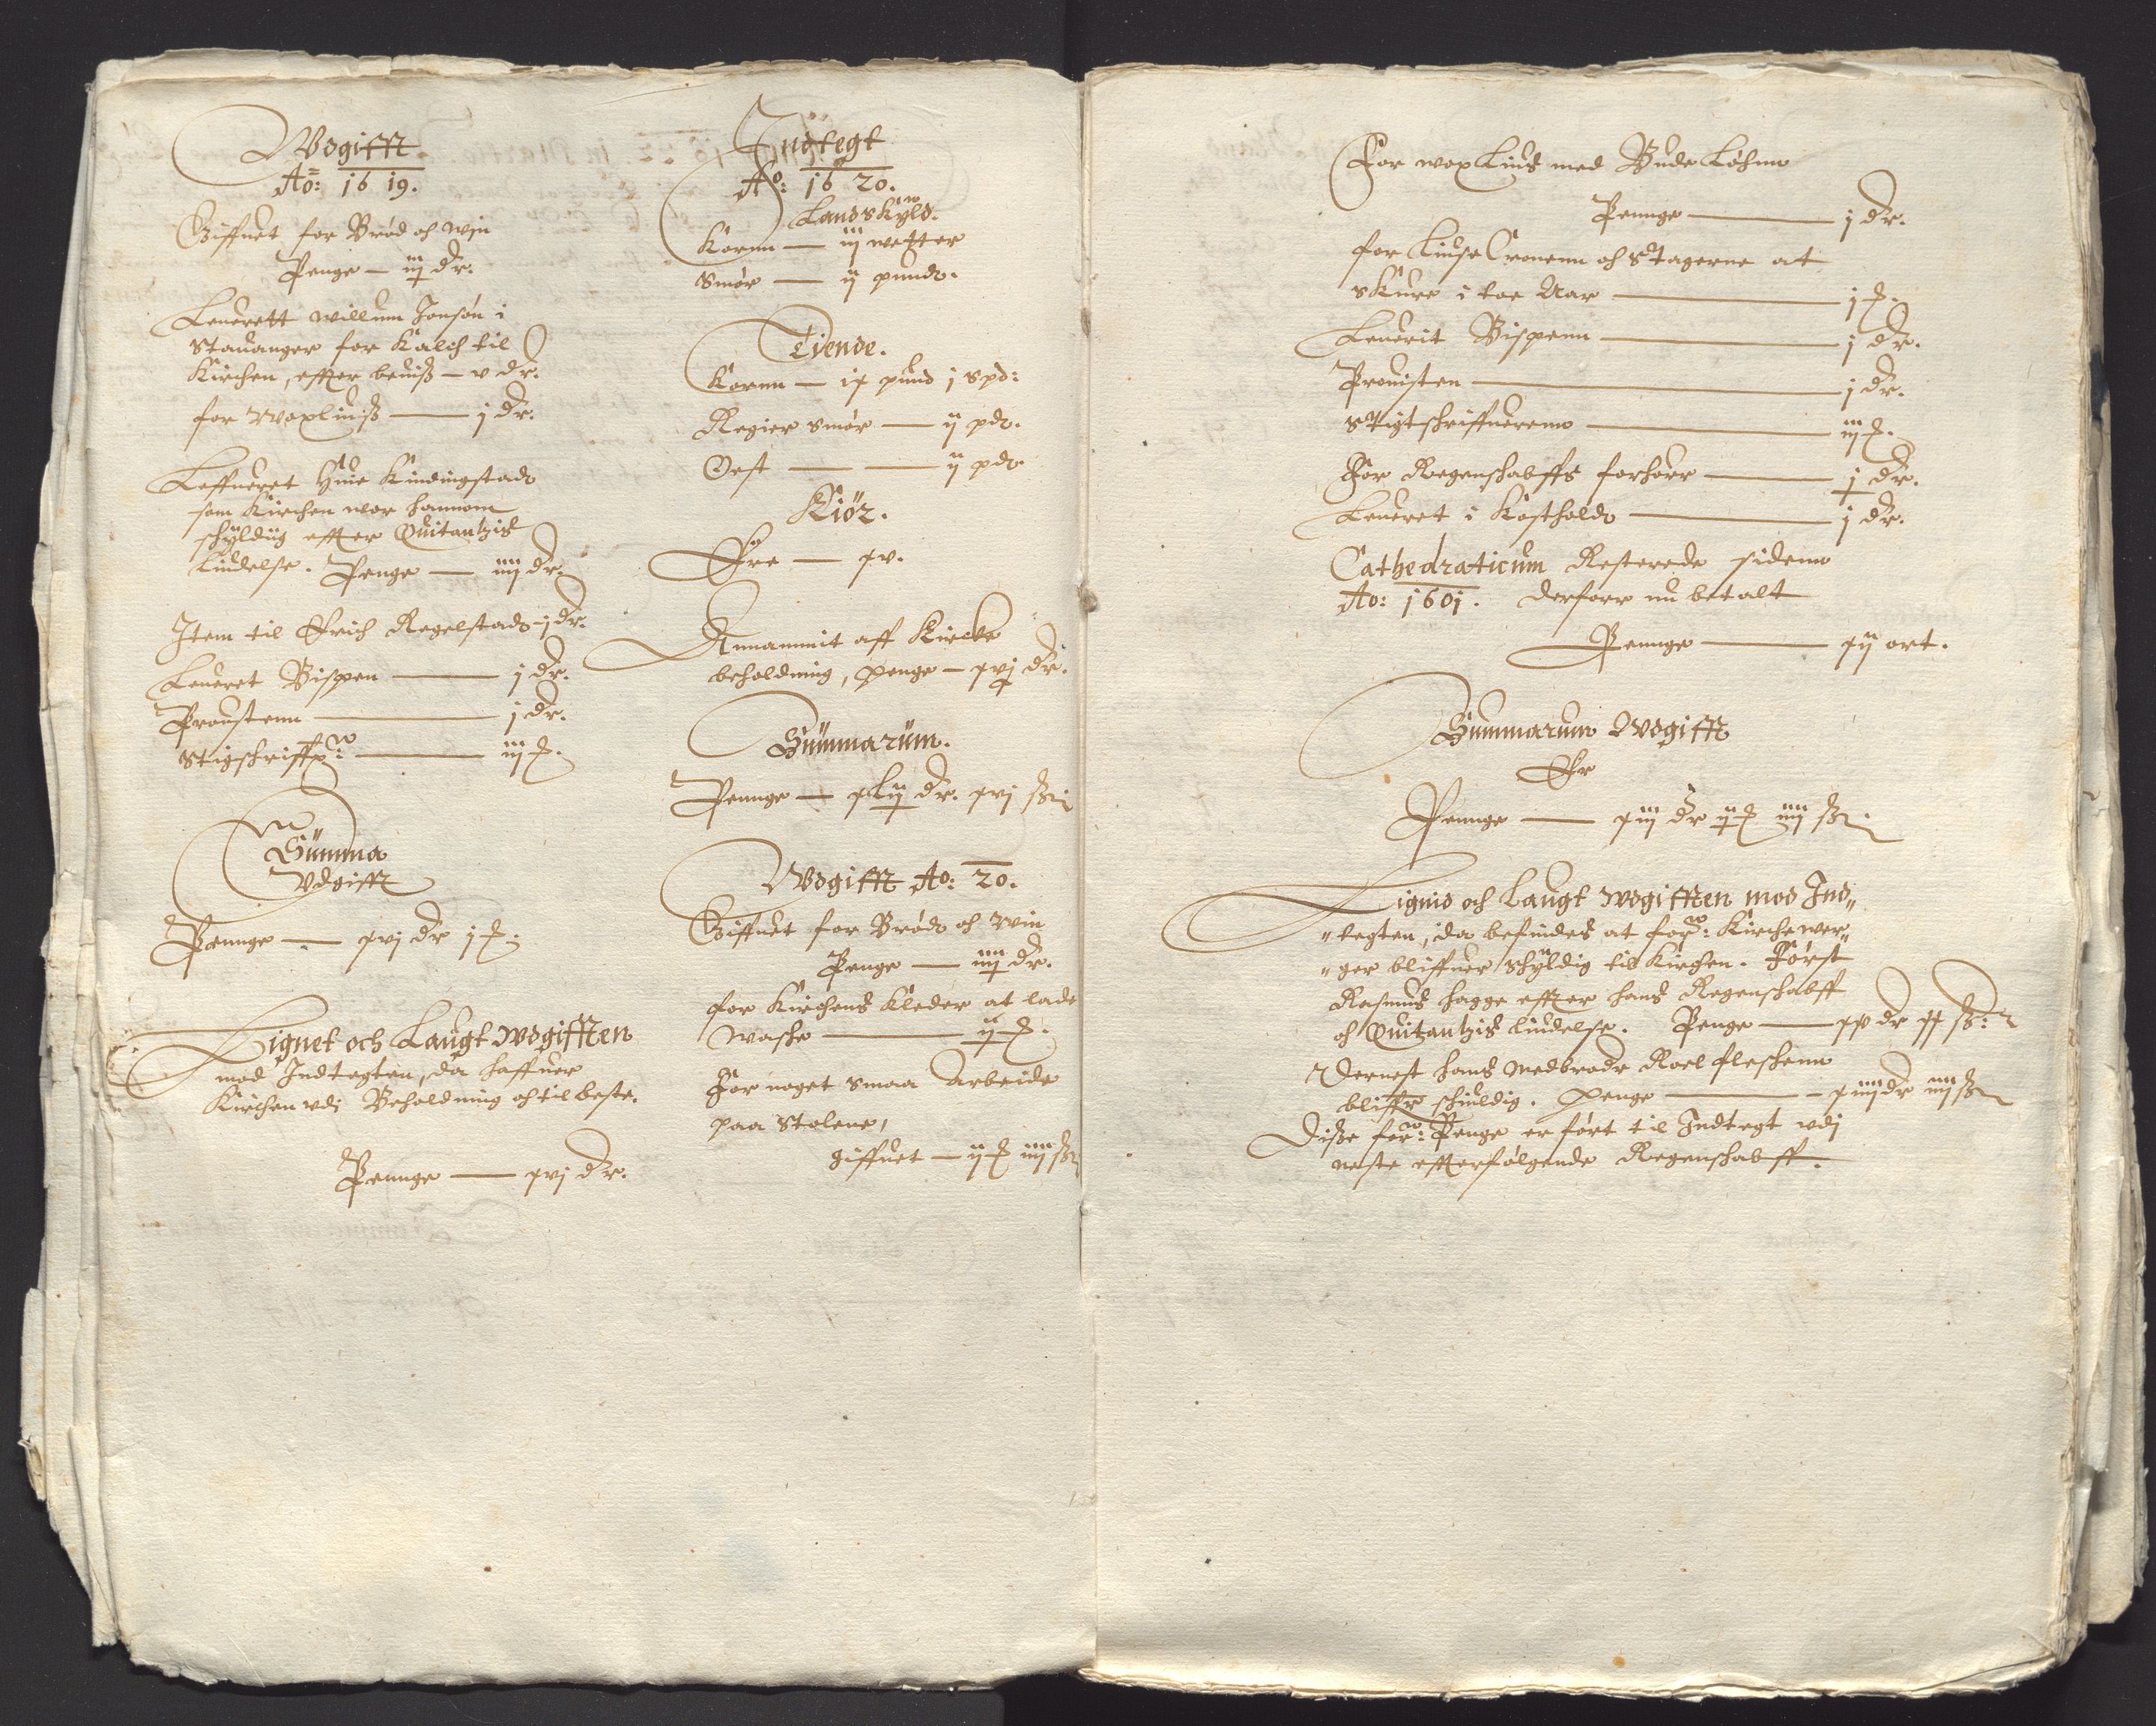 Wdgifft
Ao: 1619.
Giffuet for Brød och Win
Penge — iij dr.
Leuerett Willum Jonsøn i
Stauanger for Kalch til
Kirchen, effter beuiß — v dr.
for Woxliuß — j dr.
Leffueret Kindingstad
som Kirchen war hannom
schyldiig effter Quitantzis
liudelse. Penge — iiij dr.
Item til Erich Regelstad — j dr.
Leueret Bispen — j dr.
Proustenn — j dr.
Stigschriff: — iij
Summa
Vdgifft
Pennge — xvj dr j
Lignet och Laugt Wdgifften
mod Indtegten, da haffuer
Kirchen vdj Beholdning och til beste.
Pennge — xvj dr.
Indtegt
Ao: 1620.
Landskyld.
Kornn — iij wetter
Smør — ij pund.
Tiende.
Kornn — ix pund j spd:
Regier smør — ij pd.
Oest — ij pd.
Kiör.
Ere — xv.
Annammit aff Kircke
beholdning, penge — xvj dr.
Summarum.
Pennge — xLij dr. xvj ß
Wdgifft Ao: 20.
Giffuet for Brød och Win
Penge — iiij dr.
for Kirchens Kleder at lade
waske — ij
For noget smaa Arbeide
paa Stolene,
giffuet — ij iiij ß
For wox Lius med Bude Løhnn
Pennge — j dr.
for Liuse Cronenn och Stagerne at
skure i toe Aar — j
Leuerit Bispenn — j dr.
Prouisten — j dr.
Stigtschriffuerenn — iij
For Regenschabffs forhørr — j dr.
Leueret i Kosthold — j dr.
Cathedraticum Resterede sidenn
Ao: 1601. derforr nu betalt
Pennge — xij ort.
Summarum Wdgifft
Er
Pennge — xiij dr ij iiij ß
Lignid och Laugt Wdgifften mod Ind„
„tegten, da befindes at for: Kirchewer„
„ger bliffuer schyldig til Kirchen. Først
Rasmus Hagge effter hans Regenschabff
och Quitantzis liudelse. Penge — xv dr xx ß:
Dernest hans medbrodr Roel fleschenn
bliffr schiuldig. penge — xiiij dr iiij ß
Disse for: Penge er ført til Indtegt vdj
neste effterfølgende Regenschabff.